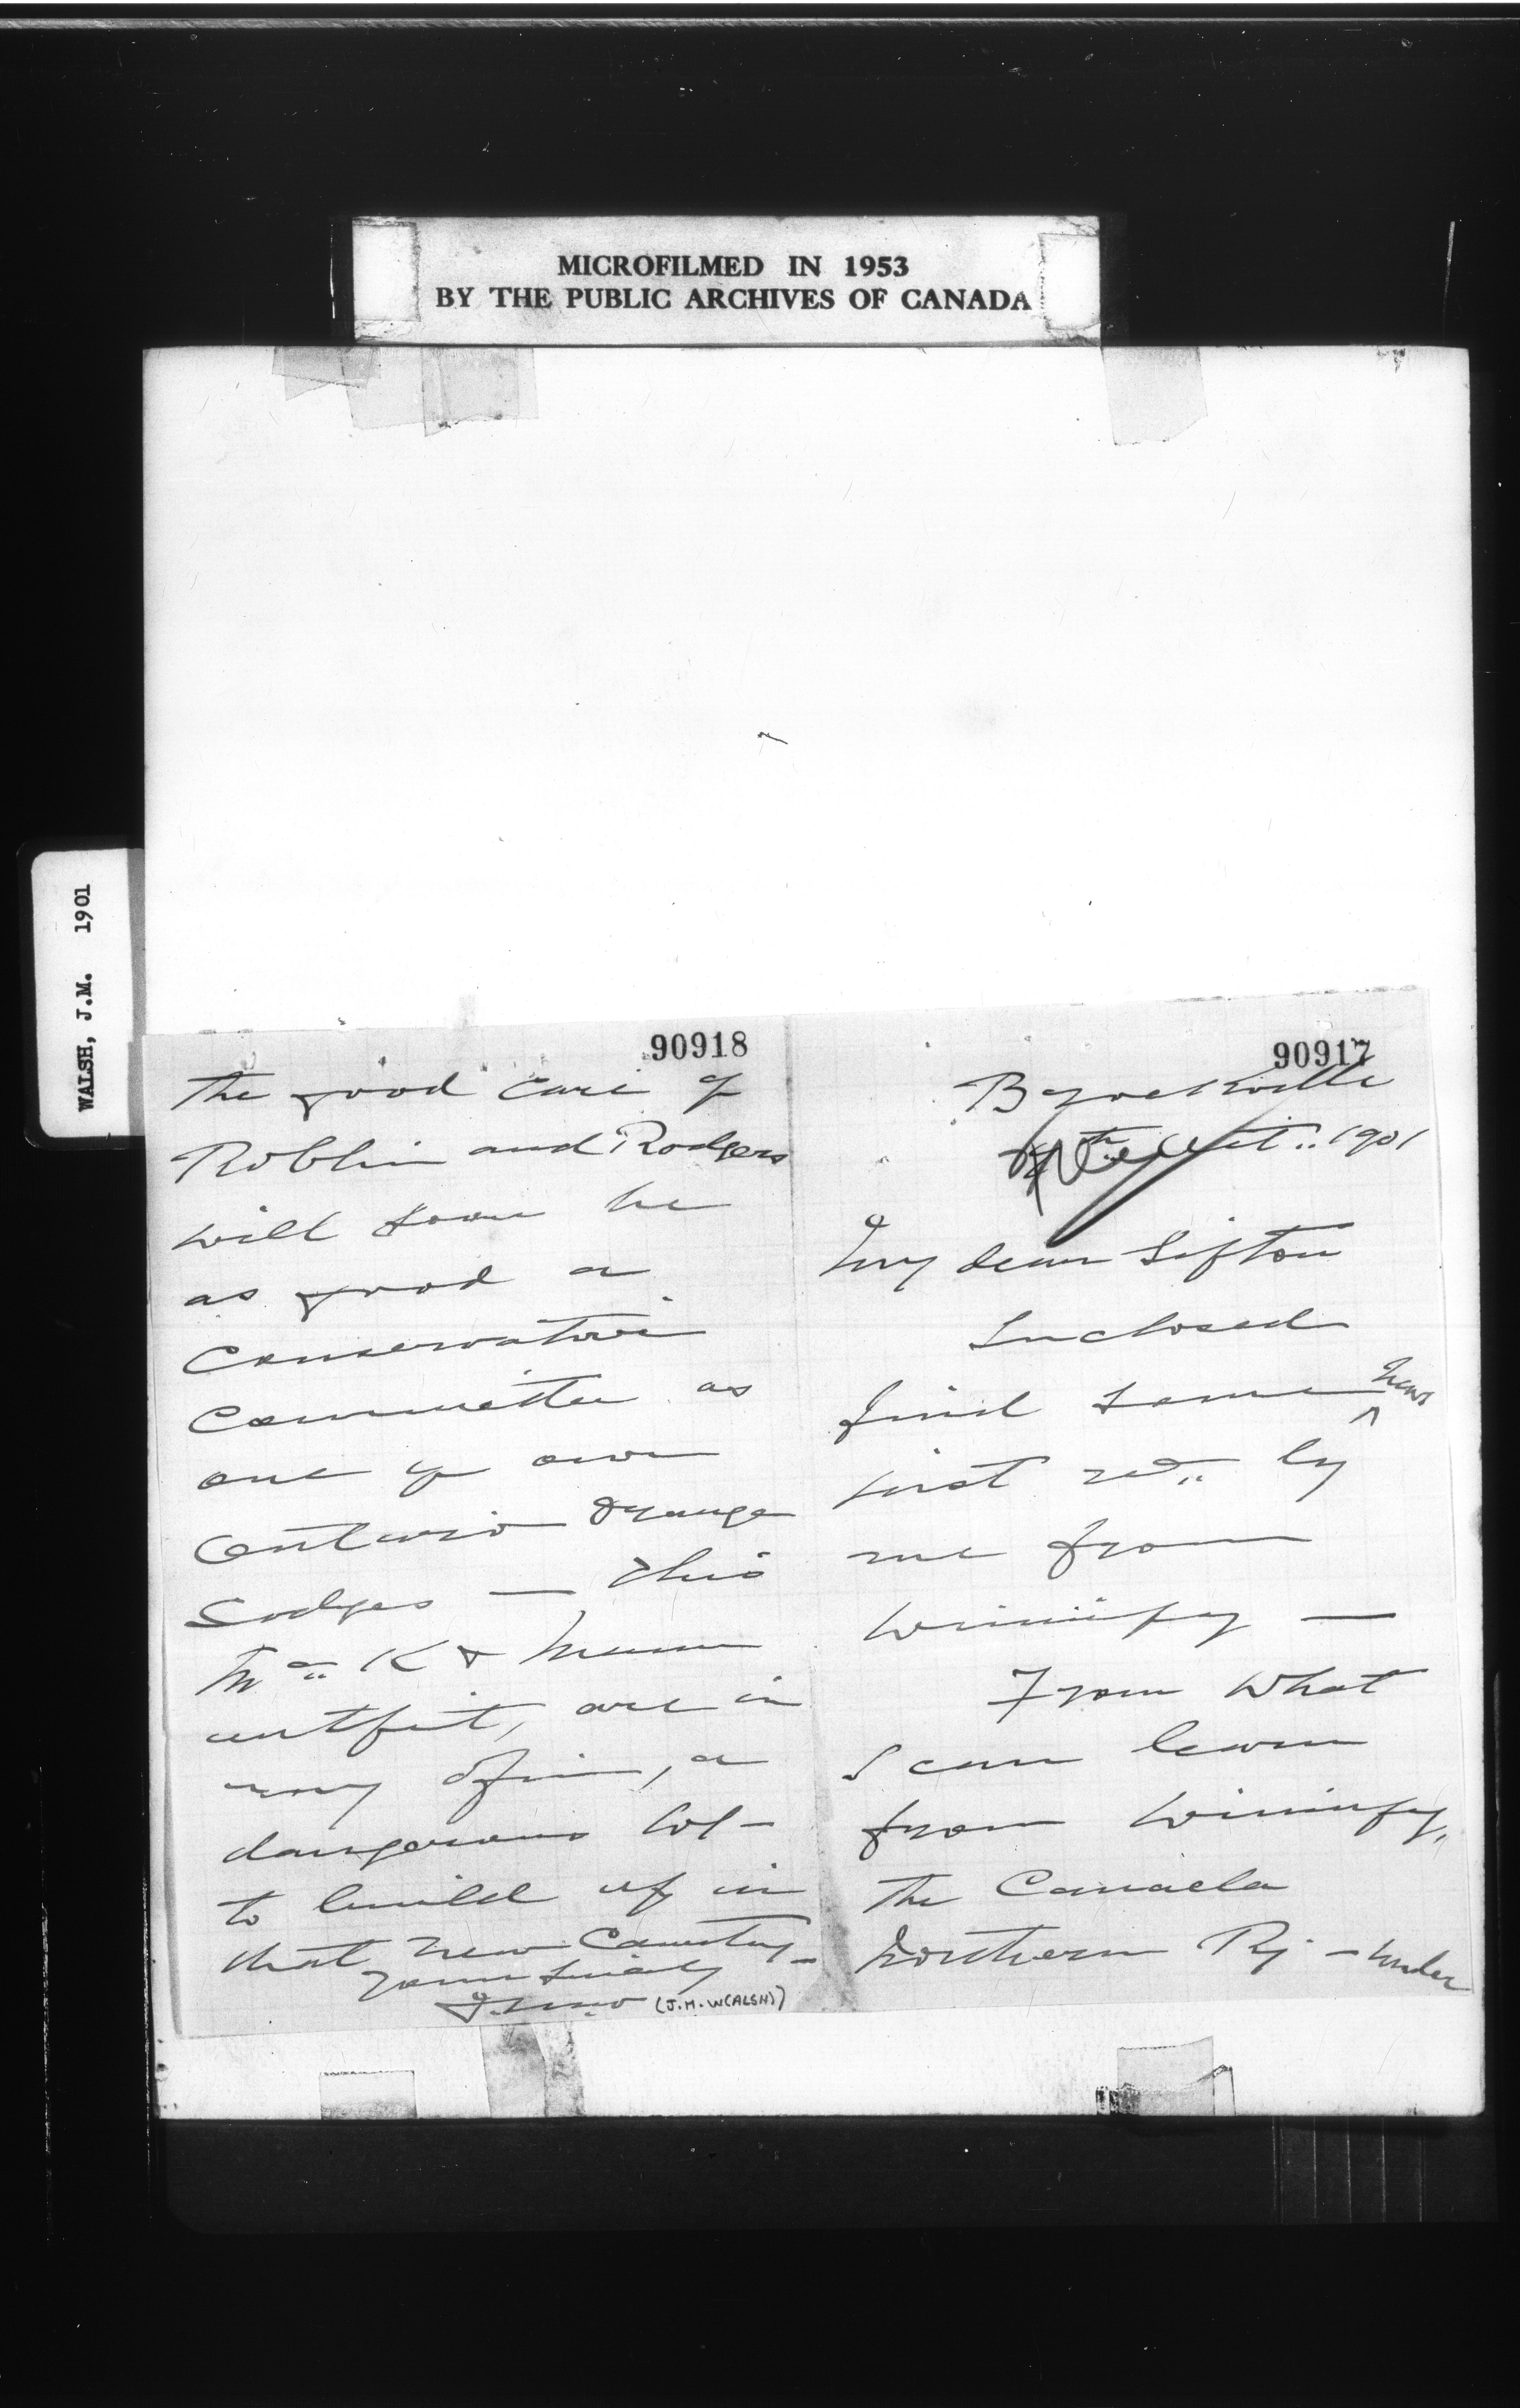 MICROFILMED IN 1953
BY THE PUBLIC ARCHIVES OF CANADA
WALSH, J.M. 1901
90917
Brockville
Oct.. 1901
My dear Sifton
Inclosed
find some news
just recd.. by
me from
Winnipeg —
From what
I can learn
from Winnipeg,
the Canada
Northern Ry — under
90918
the good care of
Roblin and Rodgers
will soon be
as good a
Conservative
Committee as
one of our
Ontario Orange
Lodges — This
Mc.. K & Mann
outfit, are in
my opin, a
dangerous lot —
to build up in
that new Country —
Yours Sincely
(J.M. W(ALSH))